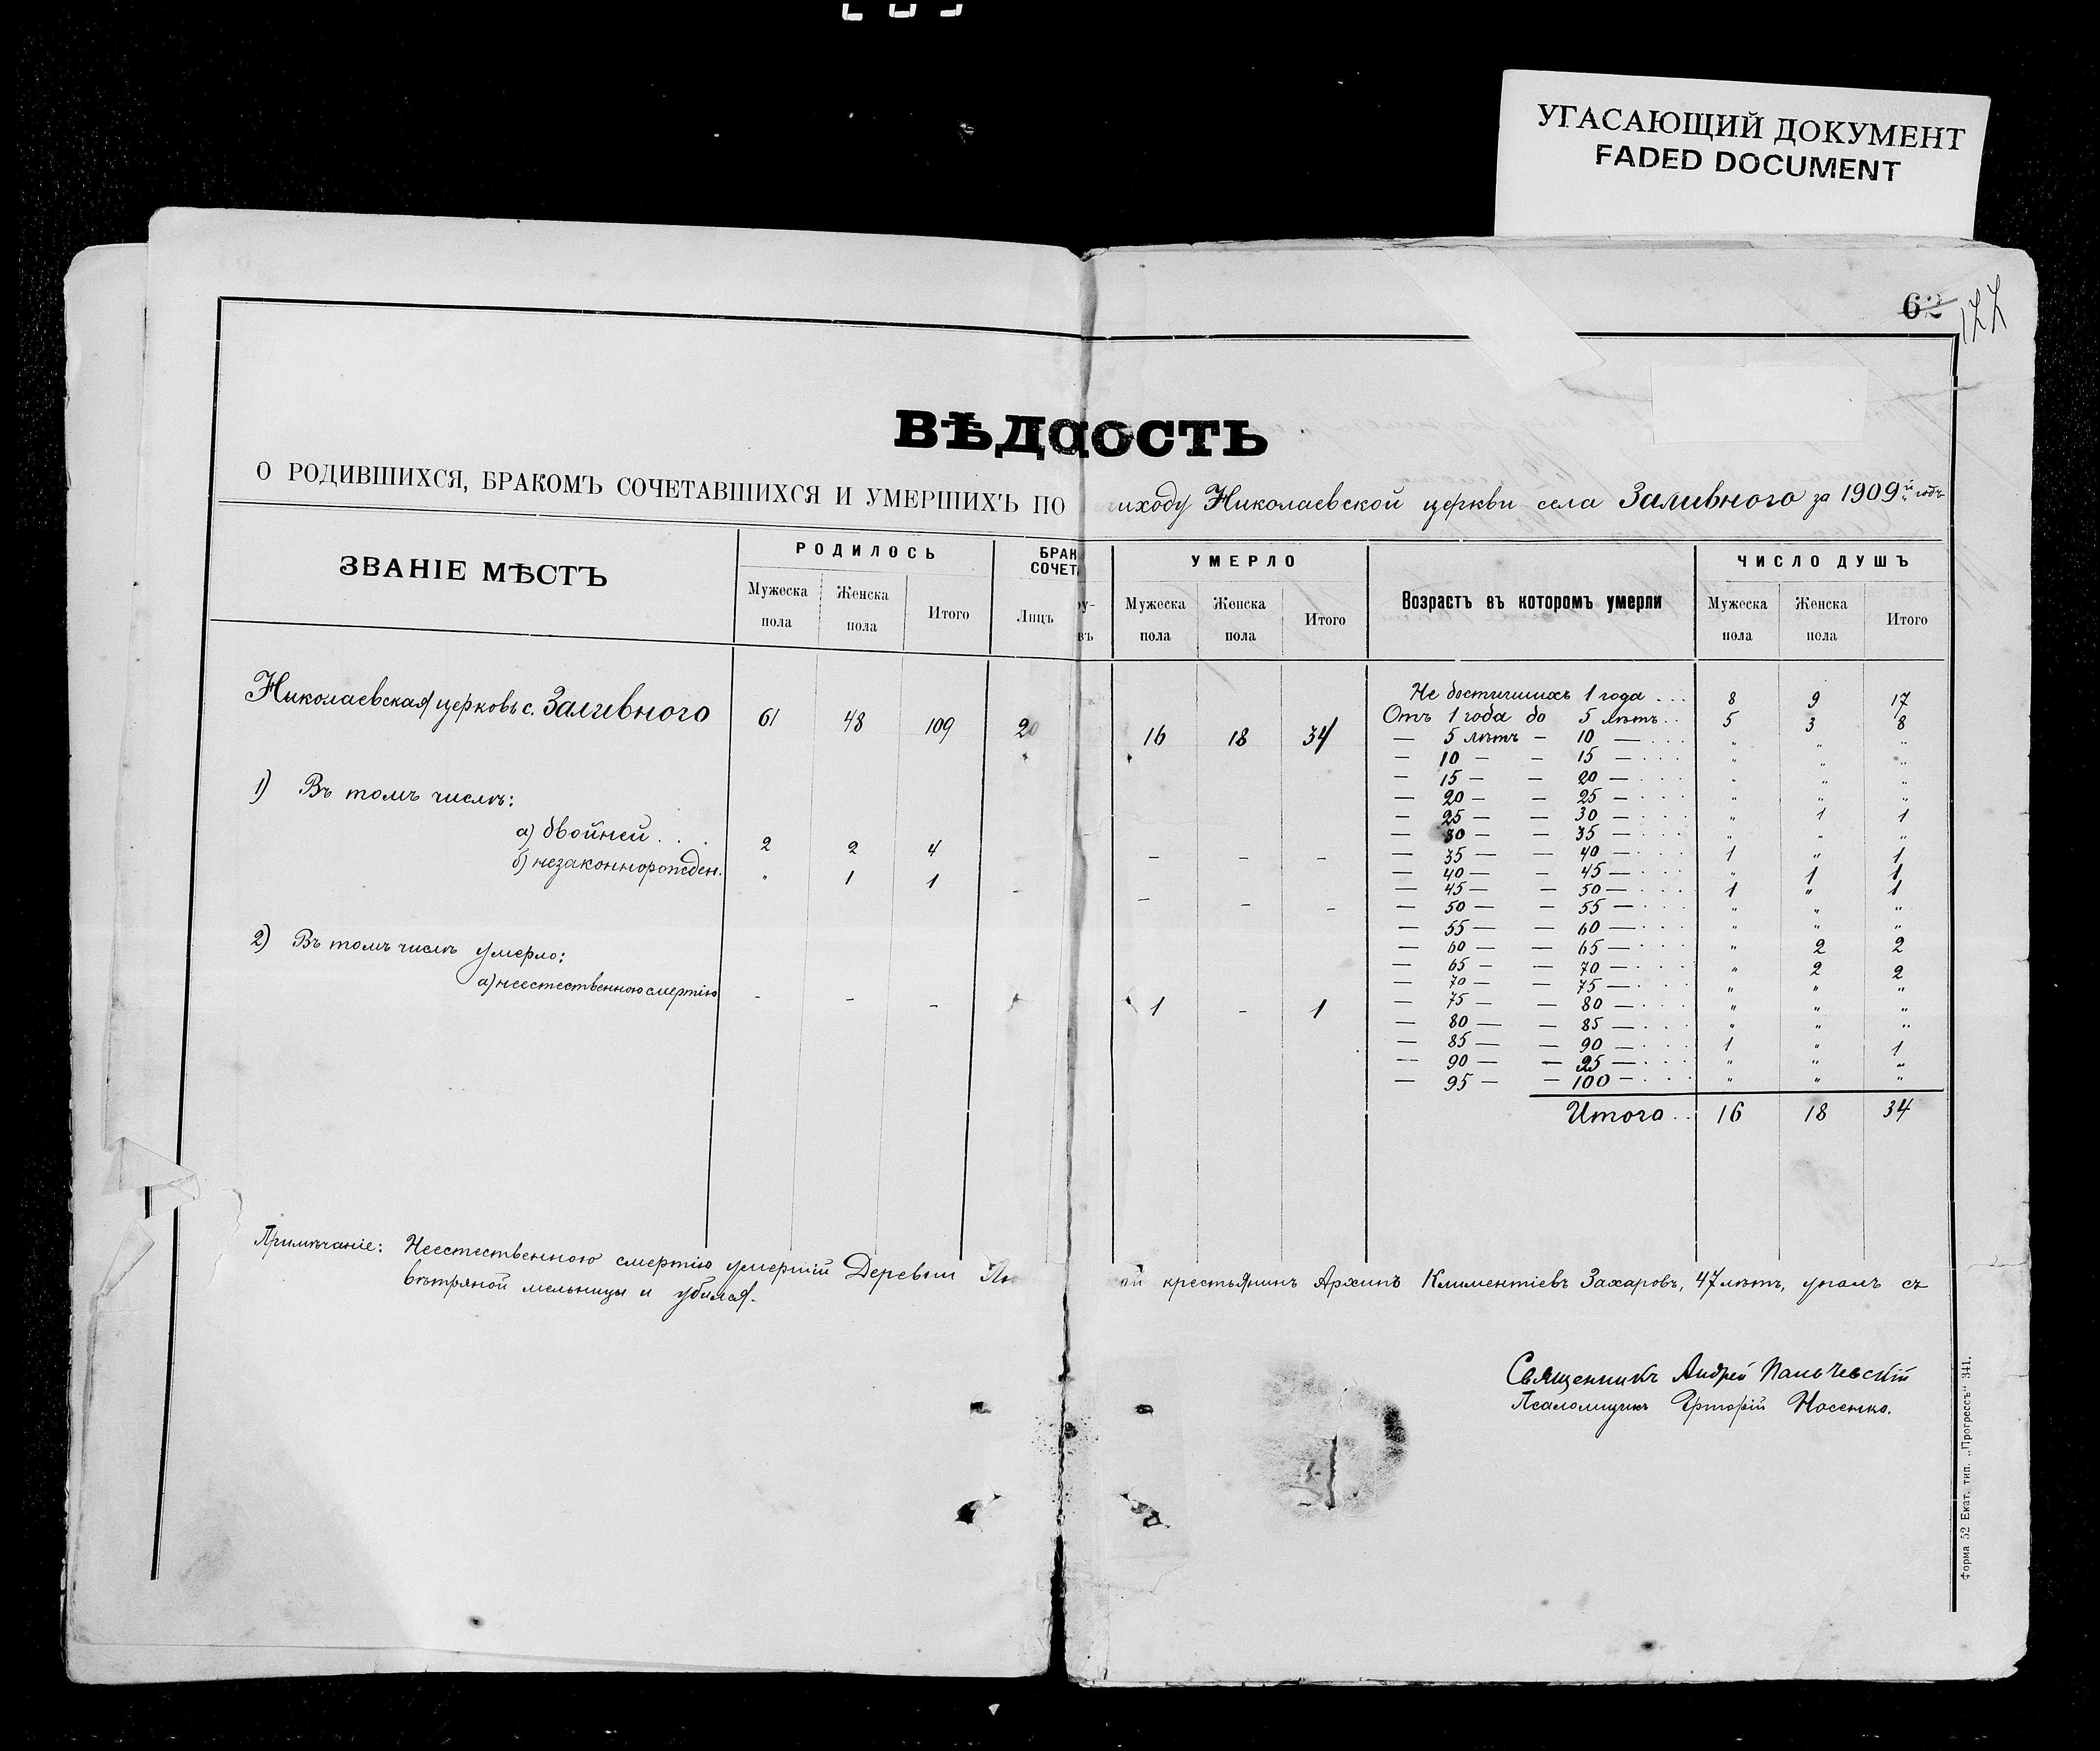 УГАСАЮЩИЙ ДОКУМЕНТ
FADED DOCUMENT
62
177
ВѢДОСТЬ
О РОДИВШИХСЯ, БРАКОМЪ СОЧЕТАВШИХСЯ И УМЕРШИХЪ ПО иходу Николаевской церкви села Заливного за 1909й годъ
ЗВАНІЕ МѢСТЪ
РОДИЛОСЬ
Мужеска пола
Женска пола
Итого
БРАК СОЧЕТ
Лицъ
УМЕРЛО
Мужеска пола
Женска пола
Итого
Возрастъ въ которомъ умерли
ЧИСЛО ДУШЪ
Мужеска пола
Женска пола
Итого
Николаевская церковь с. Заливного 61 48 109 20 16 18 34
1) Въ томъ числѣ:
а) двойней . . . 2 2 4 – – –
б) незаконнорожден. " 1 1 – – – –
2) Въ томъ числѣ умерло:
а) неестественною смертію – – – 1 – 1
Не достигшихъ 1 года . . . 8 9 17
Отъ 1 года до 5 лѣтъ . . 5 3 8
— 5 лѣтъ — 10 — . . . " " "
— 10 — — 15 — . . . " " "
— 15 — — 20 — . . . " " "
— 20 — — 25 — . . . " " "
— 25 — — 30 — . . . " 1 1
— 30 — — 35 — . . . " " "
— 35 — — 40 — . . . 1 " 1
— 40 — — 45 — . . . " 1 1
— 45 — — 50 — . . . 1 " 1
— 50 — — 55 — . . . " " "
— 55 — — 60 — . . . " " "
— 60 — — 65 — . . . " 2 2
— 65 — — 70 — . . . " 2 2
— 70 — — 75 — . . . " " "
— 75 — — 80 — . . . " " "
— 80 — — 85 — . . . " " "
— 85 — — 90 — . . . 1 " 1
— 90 — — 95 — . . . " " "
— 95 — — 100 — . . . " " "
Итого . . 16 18 34
Примѣчаніе: Неестественною смертію умершій Деревни крестьянинъ Архипъ Климентіевъ Захаровъ, 47 лѣтъ, упалъ съ
вѣтряной мельницы и убился.
Священникъ Андрей
Псаломщикъ Григорій Носенко.
Форма 52 Екат. тип. „Прогрессъ" 341.